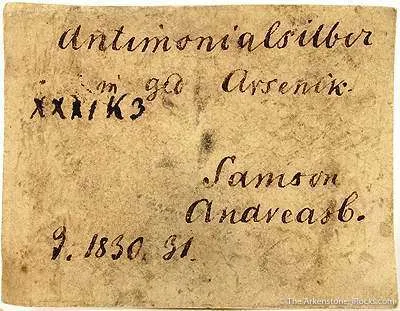 Antimonialsilber
m ged Arsenik.
XXXIK3
Samson
Andreasb.
J. 1830. 31.
© The Arkenstone, iRocks.com